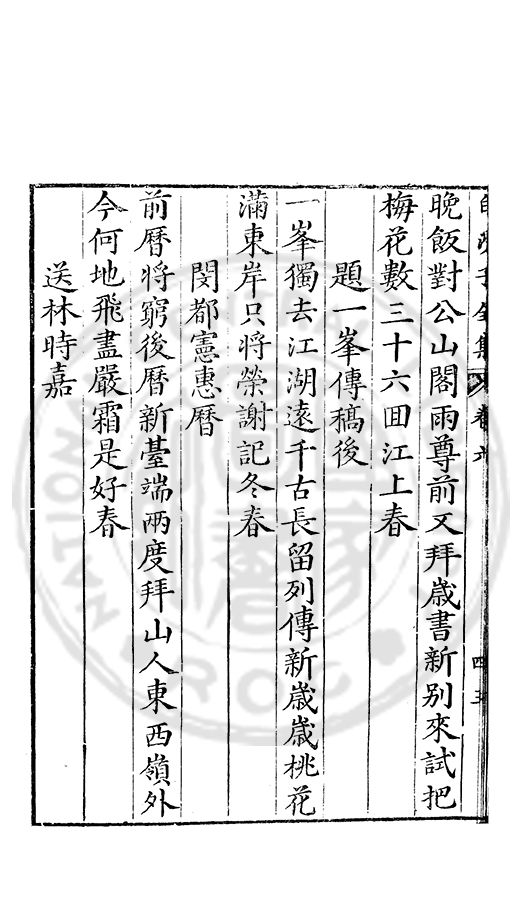 白沙子全集 卷六 四三
晚飯對公山閣雨尊前又拜歲書新別來試把
梅花數三十六回江上春
題一峯傳稿後
一峯獨去江湖遠千古長留列傳新歲歲桃花
滿東岸只將榮謝記冬春
閔都憲惠曆
前曆將窮後曆新臺端兩度拜山人東西嶺外
今何地飛盡嚴霜是好春
送林時嘉